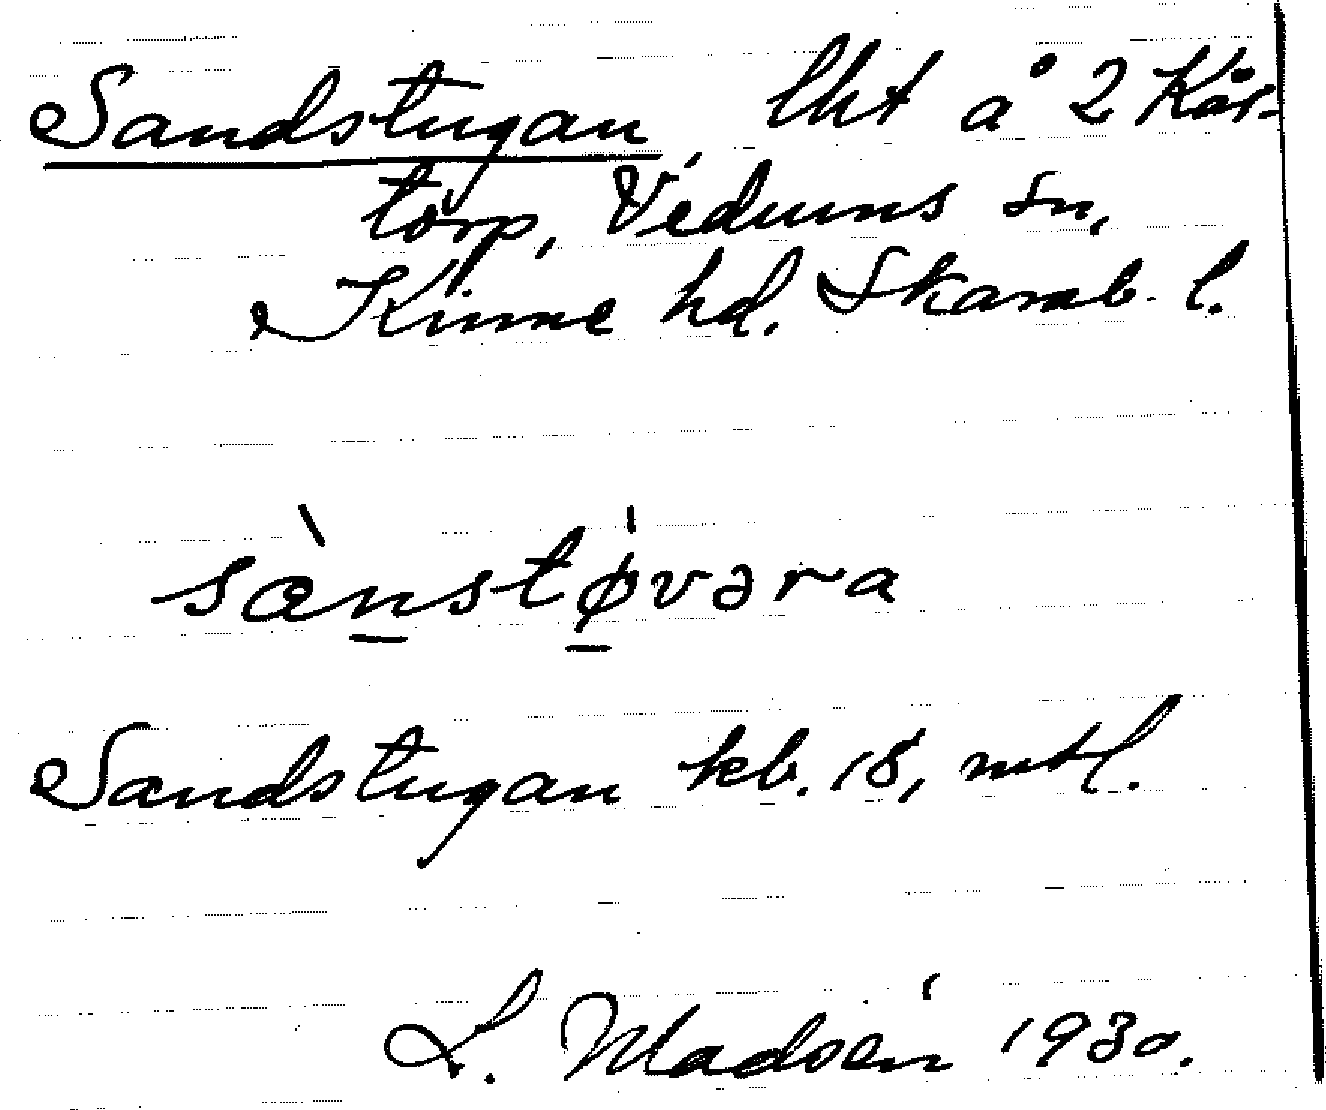 Sandstugan lht å 2 Kår-
torp, Vedums sn,
Kinne hd. Skarab. l.
sànstøvəra
Sandstugan kb. 18, mtl.
L. Madsén 1930.